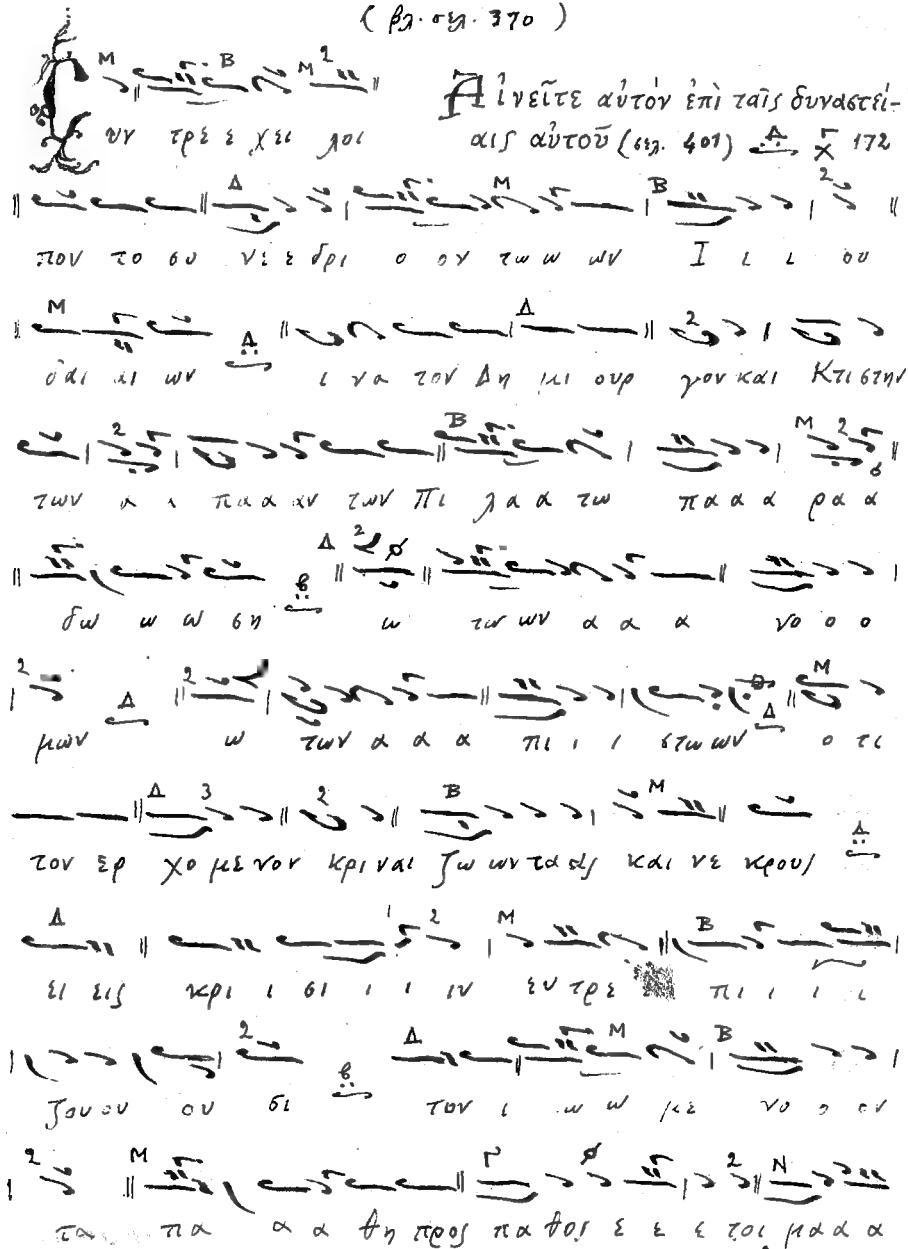 ( βλ. σελ. 370 )
Αἰνεῖτε αὐτὸν ἐπὶ ταῖς δυναστεί-
αις αὐτοῦ (σελ. 401) Δ 172
υν τρε ε χει λοι
πον το συ νε ε δρι ο ον τω ω ων Ι ι ι ου
δαι αι ων ι να τον Δη μι ουρ γον και Κτι στην
των α α πα α αν των Πι λα α τω πα α α ρα α
δω ω ω ση ω τω ων α α α νο ο ο
μων ω των α α α πι ι ι στω ων ο τι
τον ερ χο με νον κρι ναι ζω ων τα ας και νε κρους
ει εις κρι ι σι ι ι ιν ευ τρε πι ι ι ι
ζου ου ου σι τον ι ω ω με νο ο ον
τα πα α α θη προς πα θος ε ε ε τοι μα α α